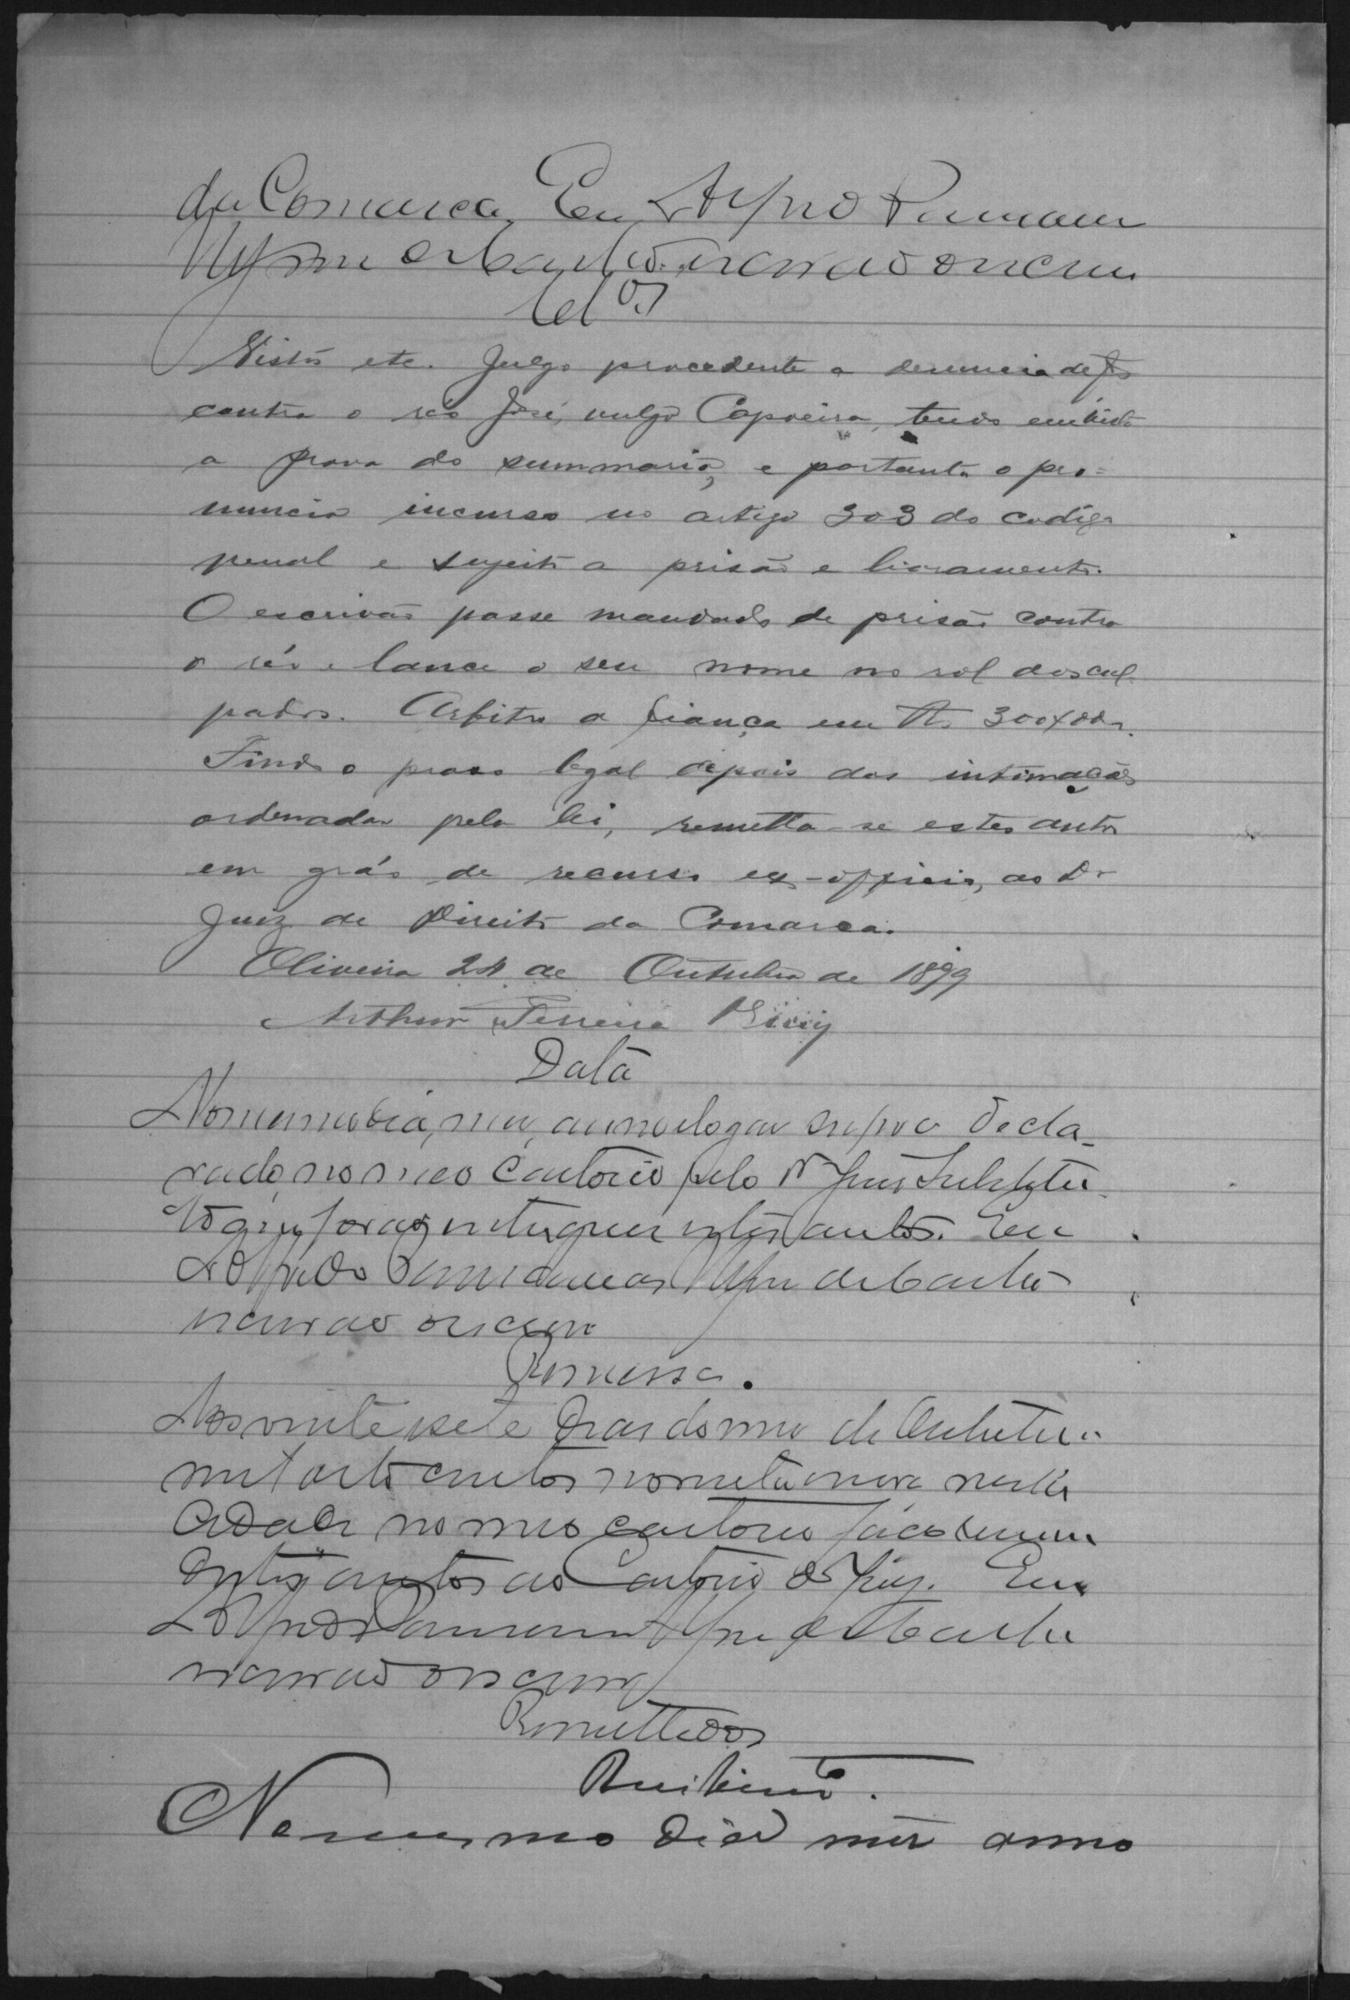 da Comarca, Eu, Alfredo
escrivão o escrevi
Cl.os
Vistos etc. Julgo procedente a denuncia de f
contra o réo José, vulgo Capoeira, tendo em vista
a prova do summario, e portanto o pro-
nuncio incurso no artigo 303 do codigo
penal e sujeito a prisão e livramento.
O escrivão passe mandado de prisão contra
o réo e lance o seu nome no rol dos cul-
pados. Arbitro a fiança em Rs 300$000.
Findo o praso legal depois das intimações
ordenadas pela lei, remetta-se estes autos
em gráo de recurso ex-officio, ao Dr
Juiz de Direito da Comarca.
Oliveira 24 de Outubro de 1899
Arthur Ferreira
Data
No mesmo dia, mez, anno e logar supra decla-
rado, no meo Cartorio pelo Dr Juiz Substitu-
to me foram entregues estes autos. Eu
Alfredo
escrivão o escrevi
Remessa.
Aos vinte e sete dias do mez de Outubro
mil oito centos noventa nove nesta
Cidade no meo cartorio faço remessa
destes autos ao Cartorio do Jury. Eu
Alfredo
escrivão o escrevi
Remettidos
Recebimto.
No mesmo dia mez anno